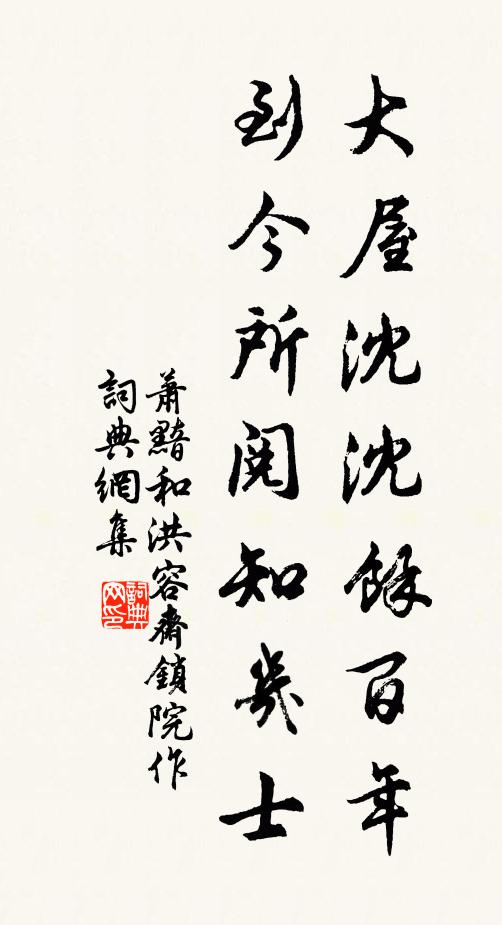 大屋沈沈餘百年
到今所閱知幾士
蕭黯和洪容齋鎖院作
詞典網集
詞典網印